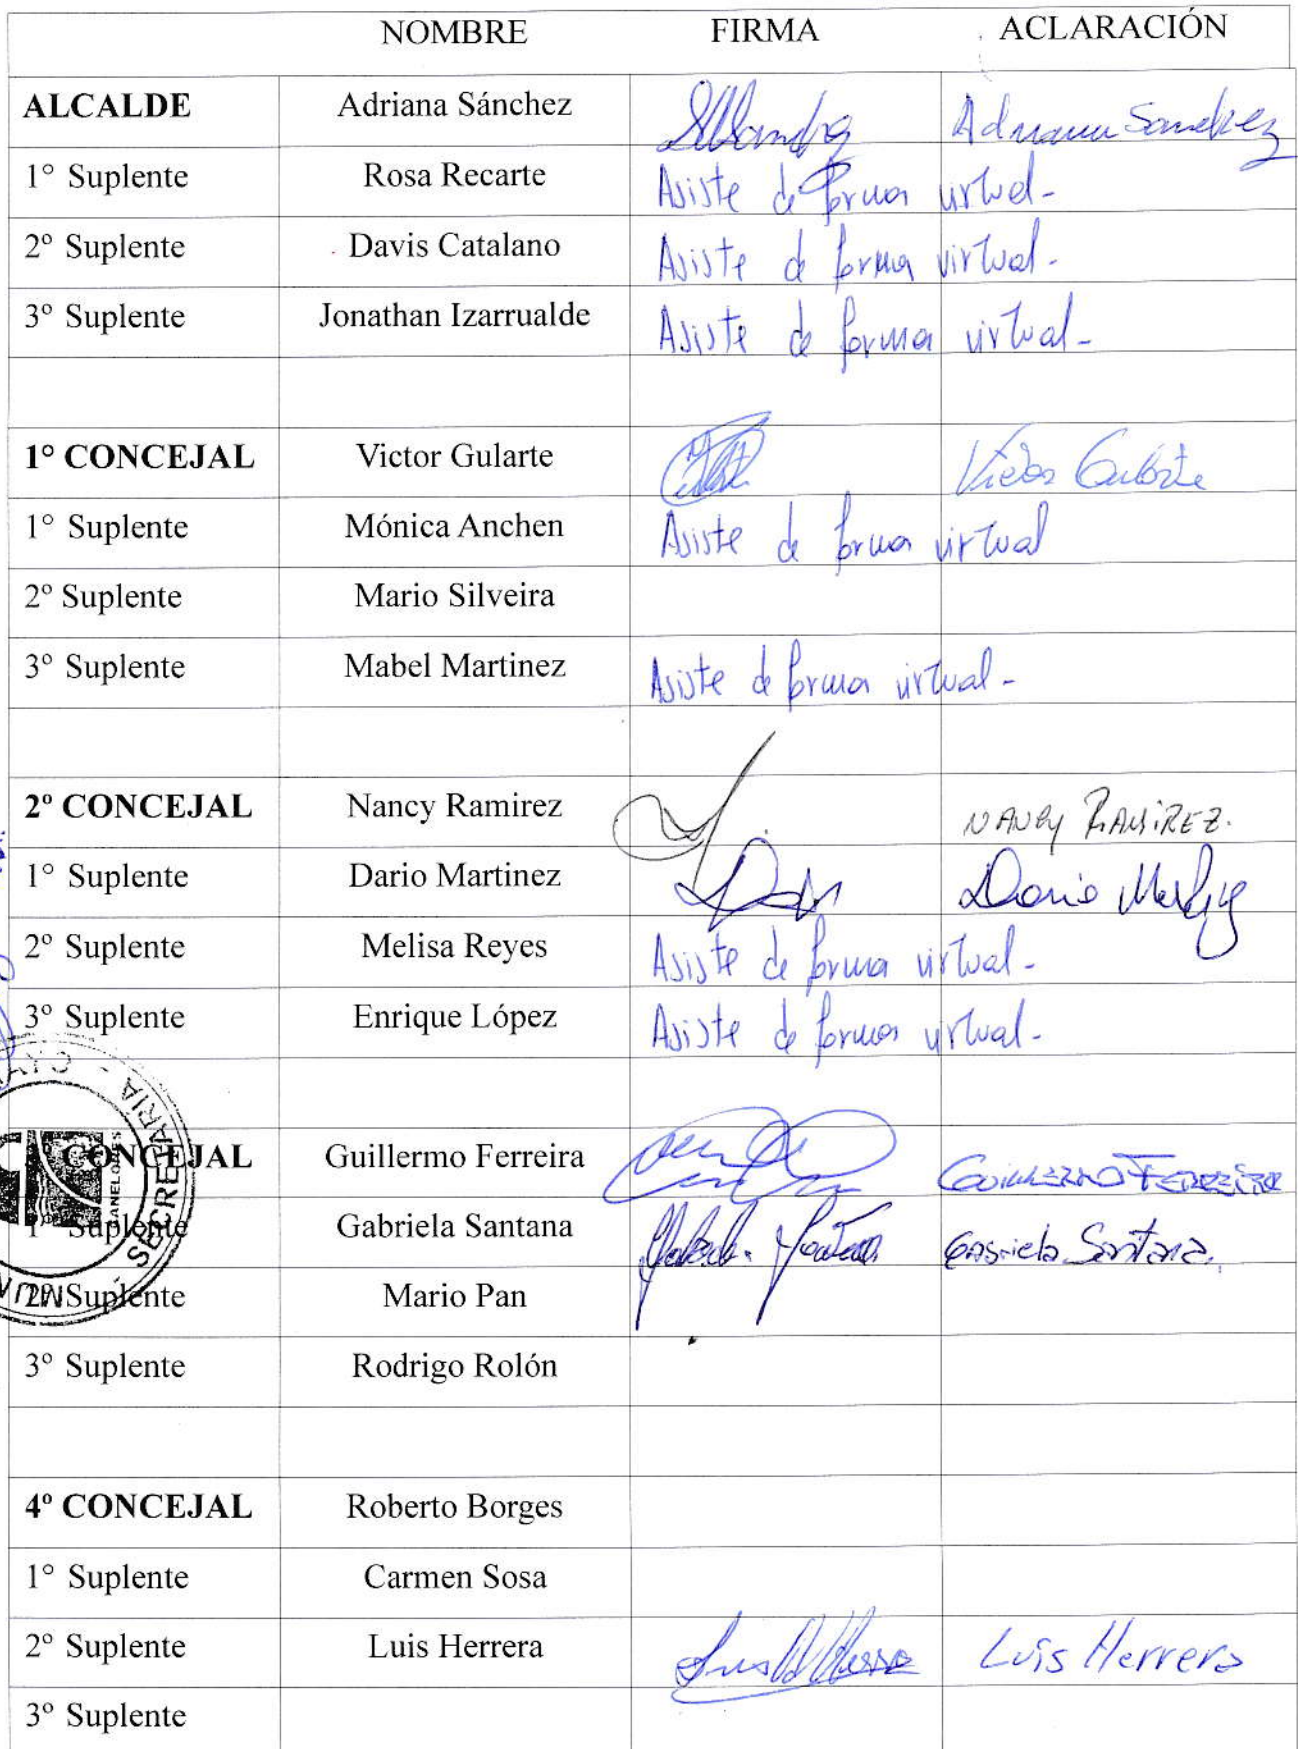 NOMBRE FIRMA ACLARACIÓN
ALCALDE Adriana Sánchez Adriana Sanchez
1° Suplente Rosa Recarte Asiste de forma virtual-
2º Suplente Davis Catalano Asiste de forma virtual-
3º Suplente Jonathan Izarrualde Asiste de forma virtual-
1° CONCEJAL Victor Gularte Victor Gularte
1° Suplente Mónica Anchen Asiste de forma virtual
2º Suplente Mario Silveira
3º Suplente Mabel Martinez Asiste de forma virtual-
2º CONCEJAL Nancy Ramirez NANCY RAMIREZ.
1° Suplente Dario Martinez Dario Martinez
2º Suplente Melisa Reyes Asiste de forma virtual-
3º Suplente Enrique López Asiste de forma virtual-
CONCEJAL Guillermo Ferreira GUILLERMO FERREIRA
1° Suplente Gabriela Santana Gabriela Santana.
2º Suplente Mario Pan
3º Suplente Rodrigo Rolón
4º CONCEJAL Roberto Borges
1° Suplente Carmen Sosa
2º Suplente Luis Herrera Luis Herrera
3º Suplente
SECRETARIA